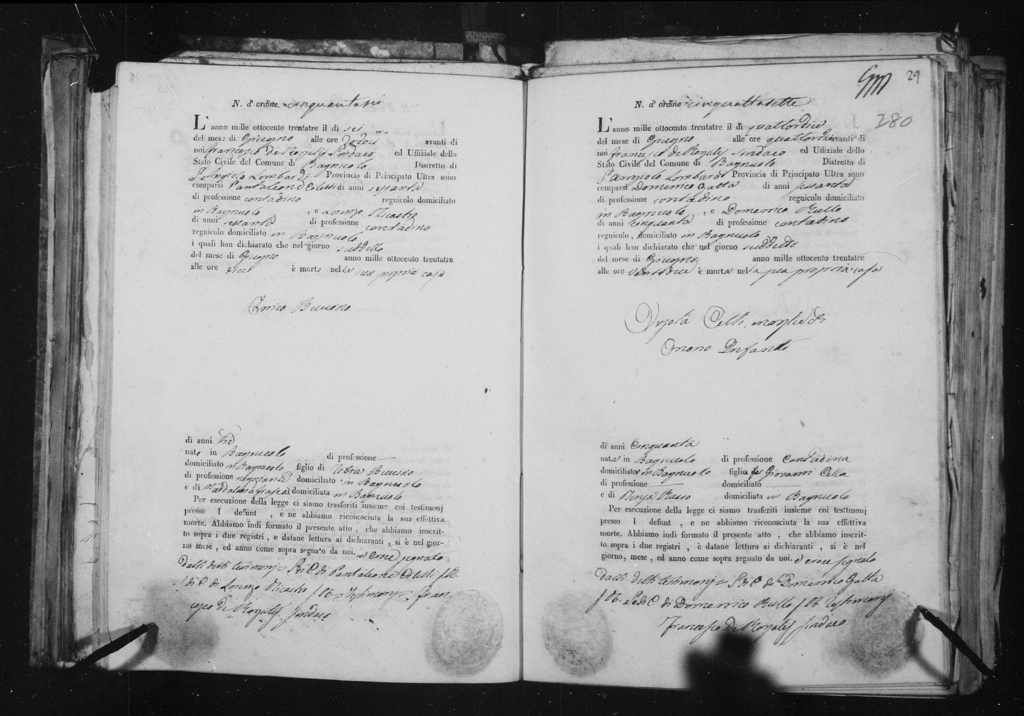 N. d'ordine cinquantasei
L'anno mille ottocento trentatre il dì sei
del mese di Giugno alle ore dodici avanti di
noi Francesco de Rogatis Sindaco ed Uffiziale dello
Stato Civile del Comune di Bagnuolo Distretto di
S. Angelo Lombardi Provincia di Principato Ultra sono
comparsi Pantaleone di anni sessanta
di professione contadino regnicolo domiciliato
in Bagnuolo e Lorenzo Nicastro
di anni sessanta di professione contadino
regnicolo domiciliato in Bagnuolo
i quali han dichiarato che nel giorno suddetto
del mese di Giugno anno mille ottocento trentatre
alle ore è morto nella sua propria casa
di anni tre
nato in Bagnuolo di professione
domiciliato in Bagnuolo figlio di
di professione domiciliato in Bagnuolo
e di Maddalena domiciliata in Bagnuolo
Per esecuzione della legge ci siamo trasferiti insieme coi testimonj
presso l defunt , e ne abbiamo riconosciuta la sua effettiva
morte. Abbiamo indi formato il presente atto , che abbiamo inscrit-
to sopra i due registri , e datane lettura ai dichiaranti , si è nel gior-
no mese , ed anno come sopra segnato da noi. e crocesegnato
Dalli detti testimonj Segno di Croce di Pantaleone
Segno di Croce di Lorenzo Nicastro testimonj Fran-
cesco de Rogatis Sindaco
29
280
N. d'ordine cinquantasette
L'anno mille ottocento trentatre il dì quattordici
del mese di Giugno alle ore quattordici avanti di
noi Francesco de Rogatis Sindaco ed Uffiziale dello
Stato Civile del Comune di Bagnuolo Distretto di
S. Angiolo Lombardi Provincia di Principato Ultra sono
comparsi Domenico Gatta di anni sessanta
di professione contadino regnicolo domiciliato
in Bagnuolo e Domenico Rullo
di anni cinquanta di professione contadino
regnicolo , domiciliato in Bagnuolo
i quali han dichiarato che nel giorno suddetto
del mese di Giugno anno mille ottocento trentatre
alle ore è morta nella sua propria casa
moglie di
Infante
di anni Cinquanta
nata in Bagnuolo di professione Contadina
domiciliata in Bagnuolo figlia fu Giovanni
di professione domiciliato
e di Russo domiciliata in Bagnuolo
Per esecuzione della legge ci siamo trasferiti insieme coi testimonj
presso l defunt , e ne abbiamo riconosciuta la sua effettiva
morte. Abbiamo indi formato il presente atto , che abbiamo inscrit-
to sopra i due registri , è datane lettura ai dichiaranti , si è nel
giorno, mese , ed anno come sopra segnato da noi. e croce segnato
Dalli detti testimonj Segno di Croce di Domenico Gatta
Segno di Croce di Domenico Rullo testimonj
Francesco de Rogatis Sindaco